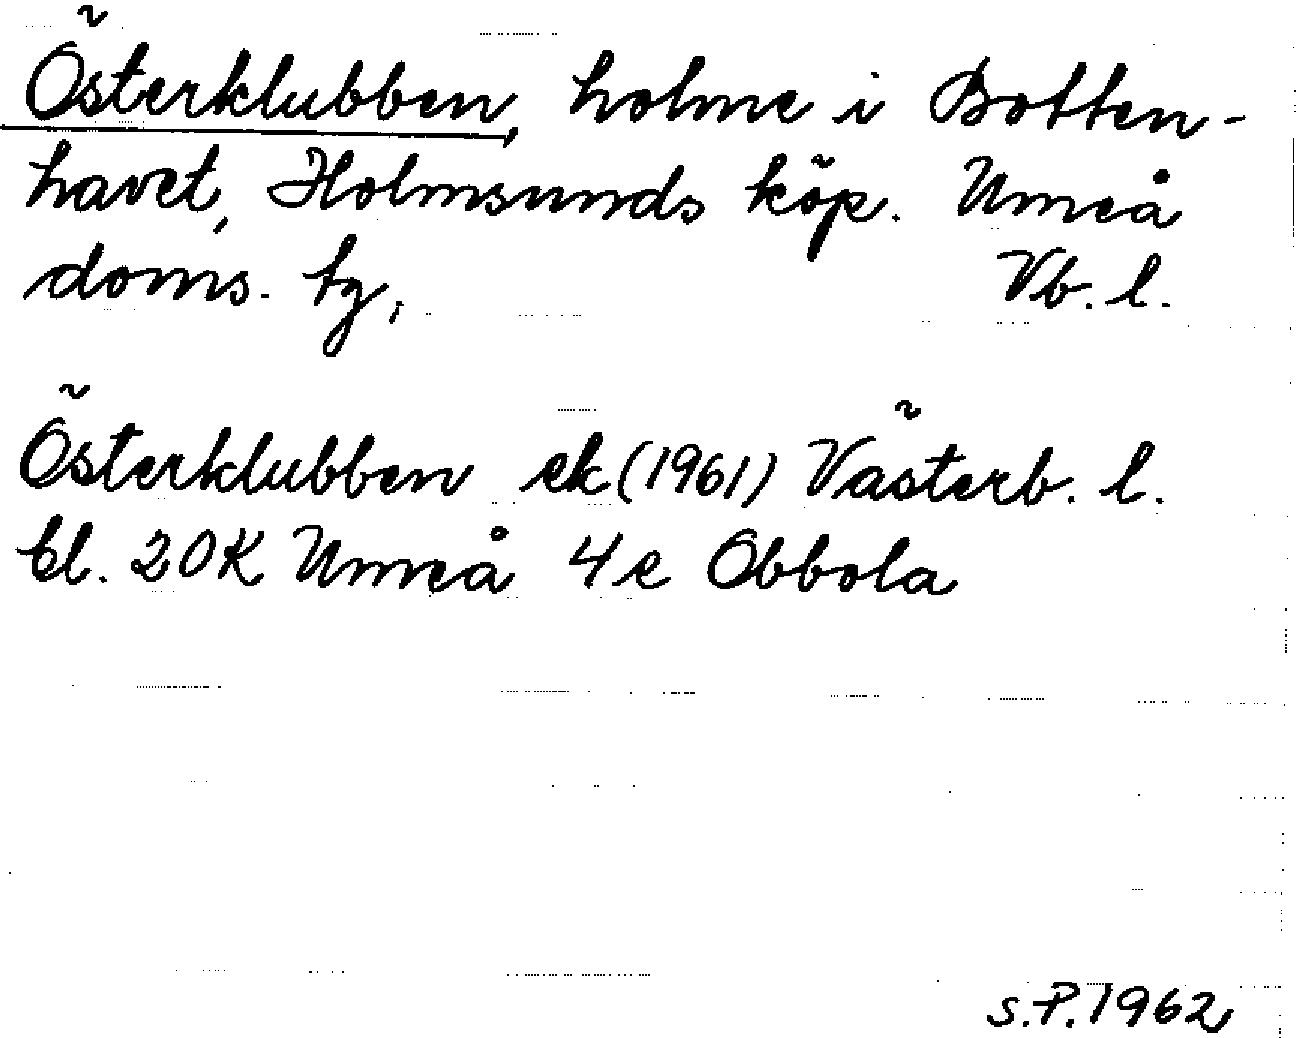 Österklubben, holme i Botten-
havet, Holmsunds köp. Umeå
doms. tg, Vb. l.
Österklubben ek (1961) Västerb. l.
bl. 20K Umeå 4e Obbola
S.P. 1962